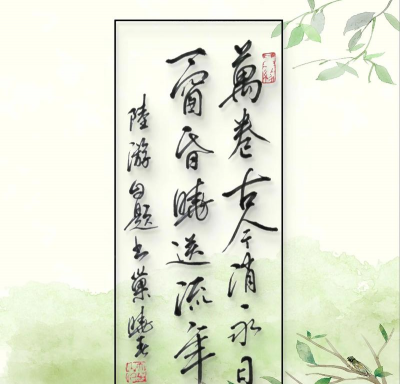 萬卷古今消永日
一窗昏曉送流年
陸游自題書巢